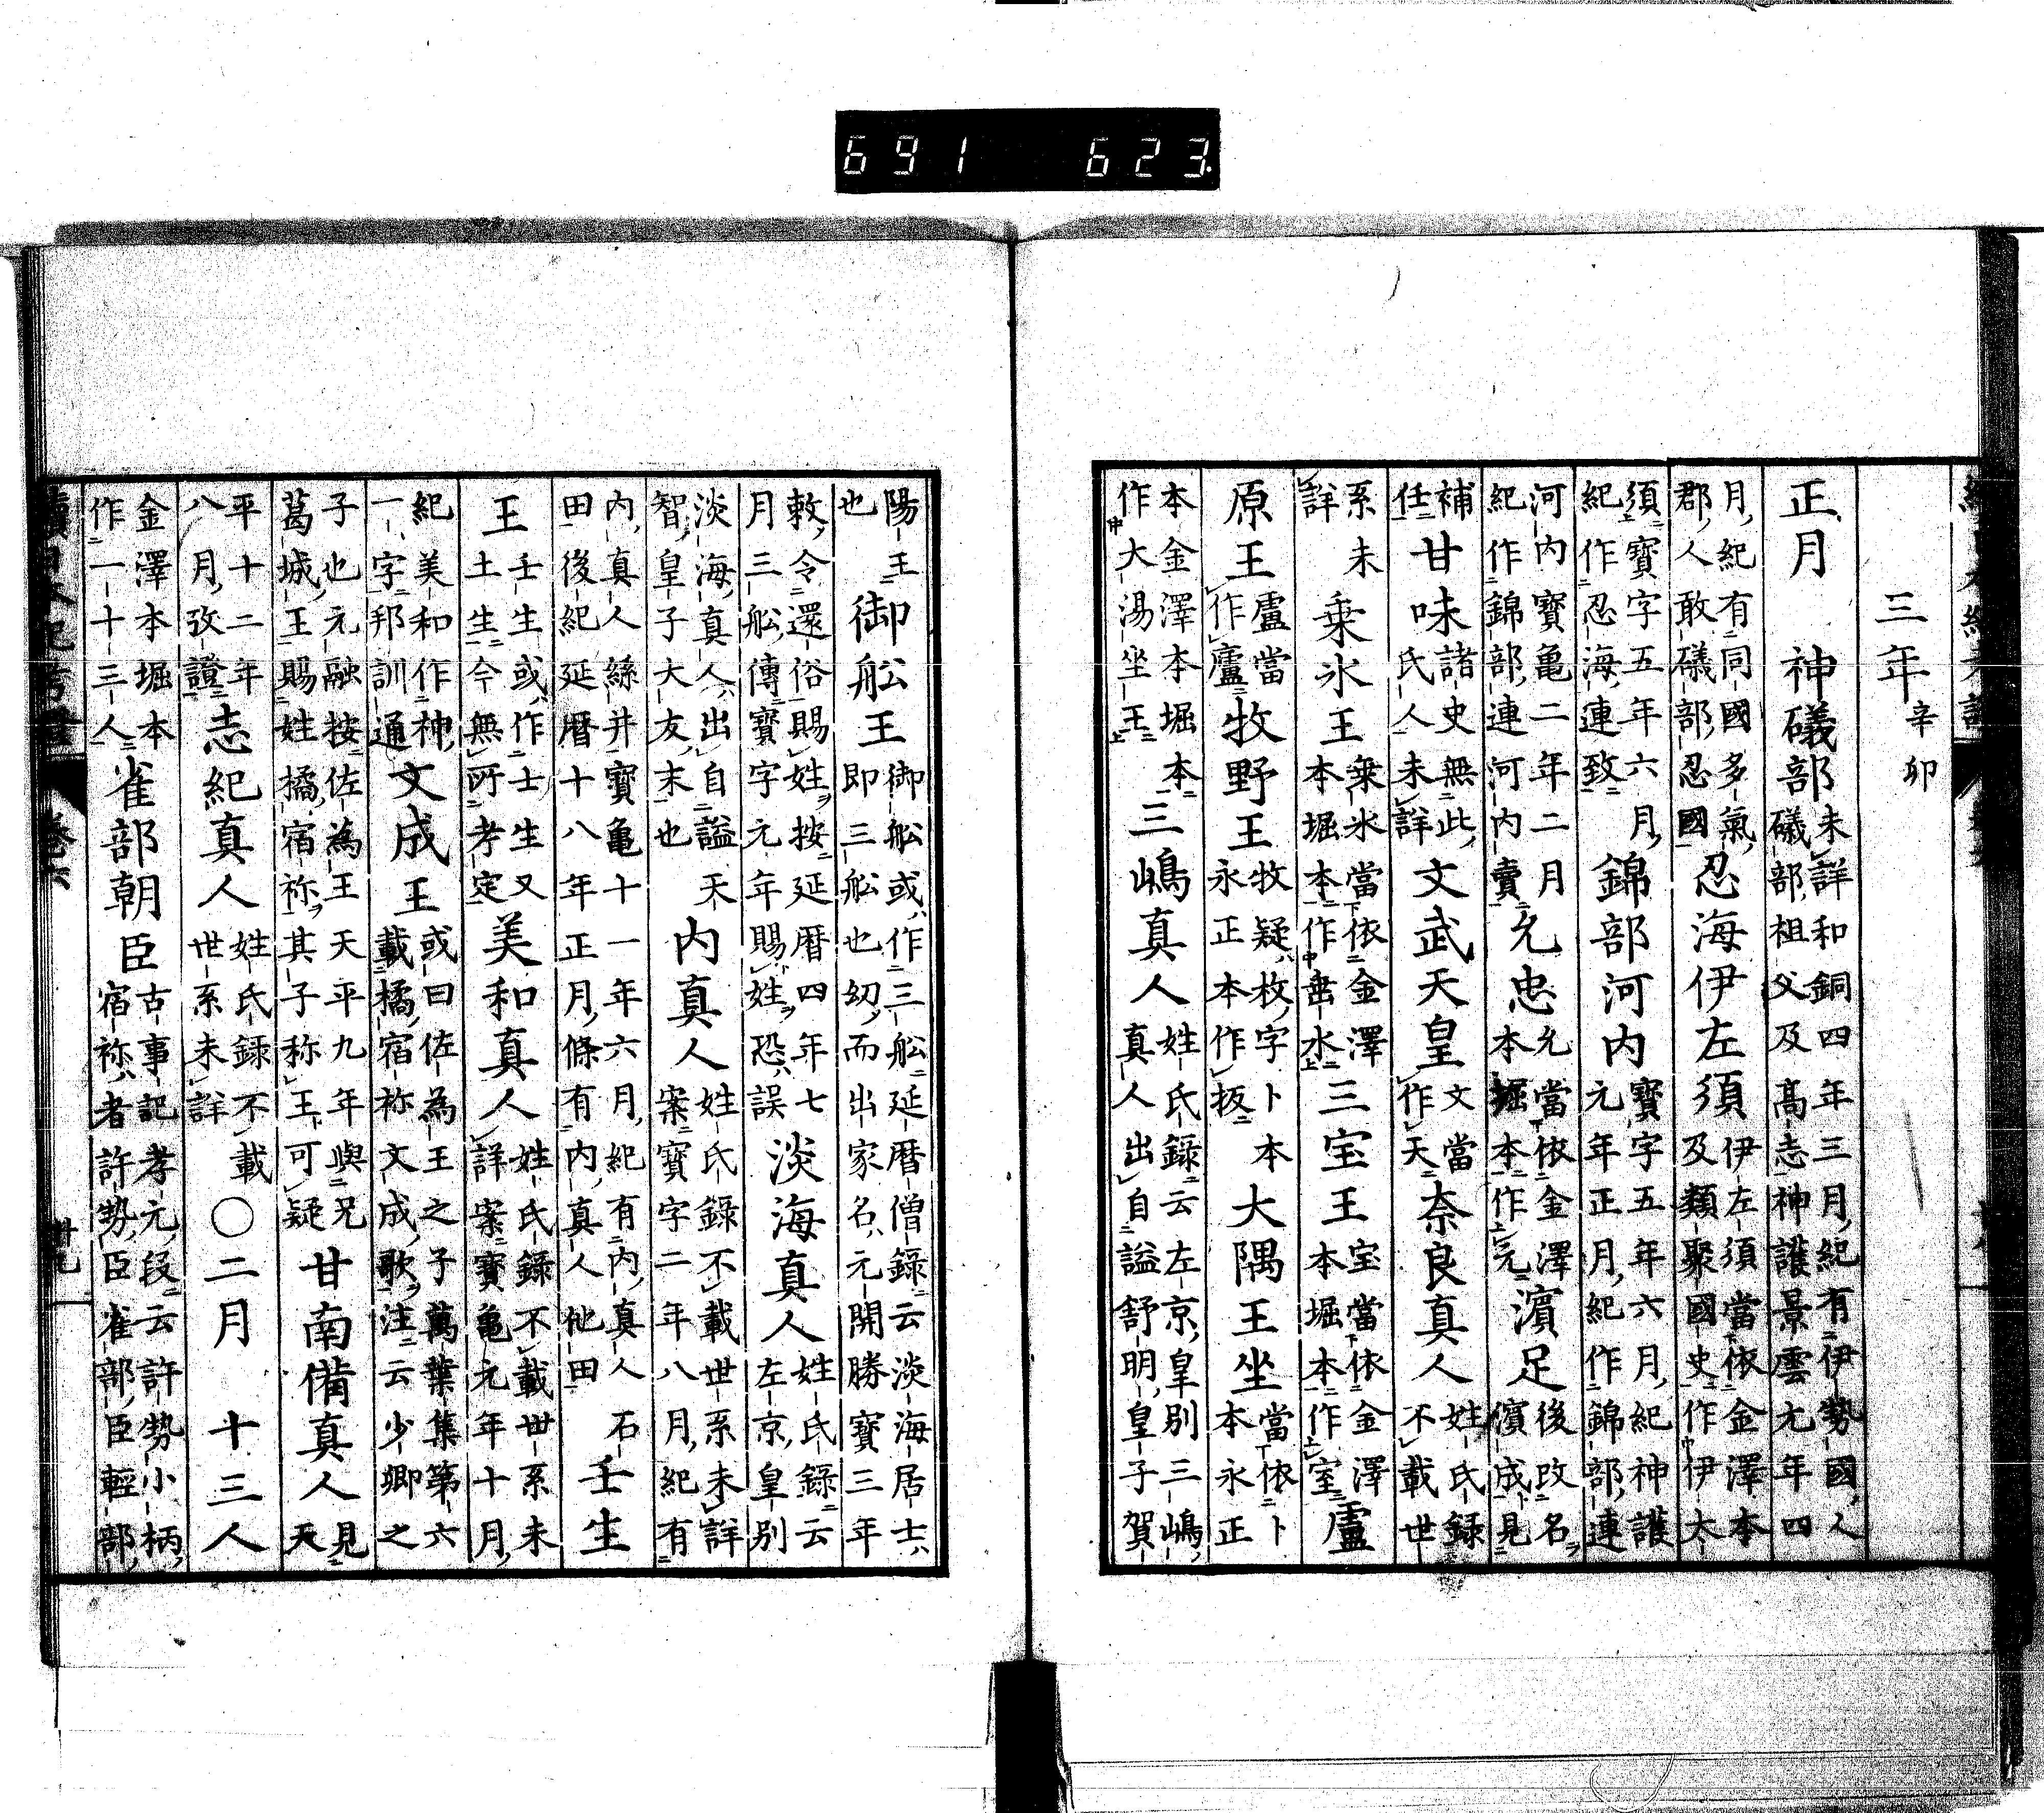 三年辛卯
正月 神礒部未詳和銅四年三月紀有伊勢國人礒部祖父及高志神護景雲元年四
月紀有同國多氣郡人敢礒部忍國忍海伊左須伊左須當依金澤本及類聚國史作伊太
須寶字五年六月紀作忍海連致錦部河内寶字五年六月紀神護元年正月紀作錦部連
河内寶亀二年二月紀作錦部連河内賣允忠允當依金澤本堀本作元濱足後改名濱成見
補任甘味諸史無此氏人未詳文武天皇文當作天奈良真人姓氏録不載世
系未詳乗氷王乗氷當依金澤本堀本作垂水三宝王宝當依金澤本堀本作室盧
原王盧當作廬牧野王牧疑枚字卜本永正本作扳大隅王坐當依卜本永正
本金澤本堀本作大湯坐王三嶋真人姓氏録云左京皇別三嶋真人出自謚舒明皇子賀
陽王也御舩王御舩或作三舩延暦僧録云淡海居士即三舩也幼而出家名元開勝寶三年
敕令還俗賜姓按延暦四年七月三舩傳寶字元年賜姓恐誤淡海真人姓氏録云左京皇別
淡海真人出自謚天智皇子大友末也内真人姓氏録不載世系未詳案寶字二年八月紀有
内真人絲井寶亀十一年六月紀有内真人石田後紀延暦十八年正月條有内真人他田壬生
王壬生或作士生又土生今無所考定美和真人姓氏録不載世系未詳案寶亀元年十月
紀美和作神一字邦訓通文成王或曰佐為王之子萬葉集第六載橘宿祢文成歌注云少卿之
子也元融按佐為王天平九年與兄葛城王賜姓橘宿祢其子称王可疑甘南備真人見天
平十二年八月攷證志紀真人姓氏録不載世系未詳○二月 十三人
金澤本堀本作一十三人雀部朝臣古事記孝元段云許勢小柄宿祢者許勢臣雀部臣輕部
續日本紀考證 卷六 廿九